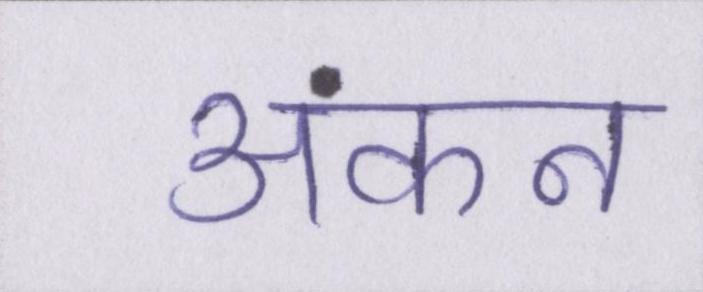 अंकन